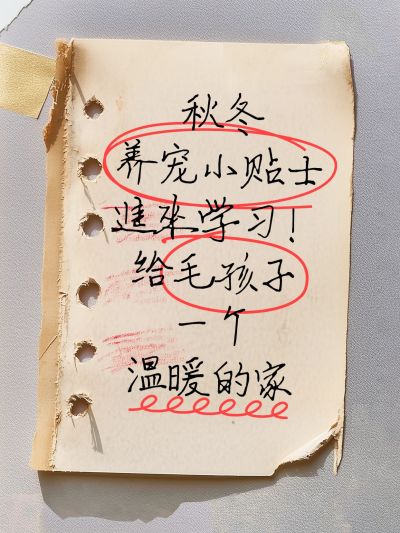 秋冬
养宠小贴士
進來学习！
给毛孩子
一个
温暖的家